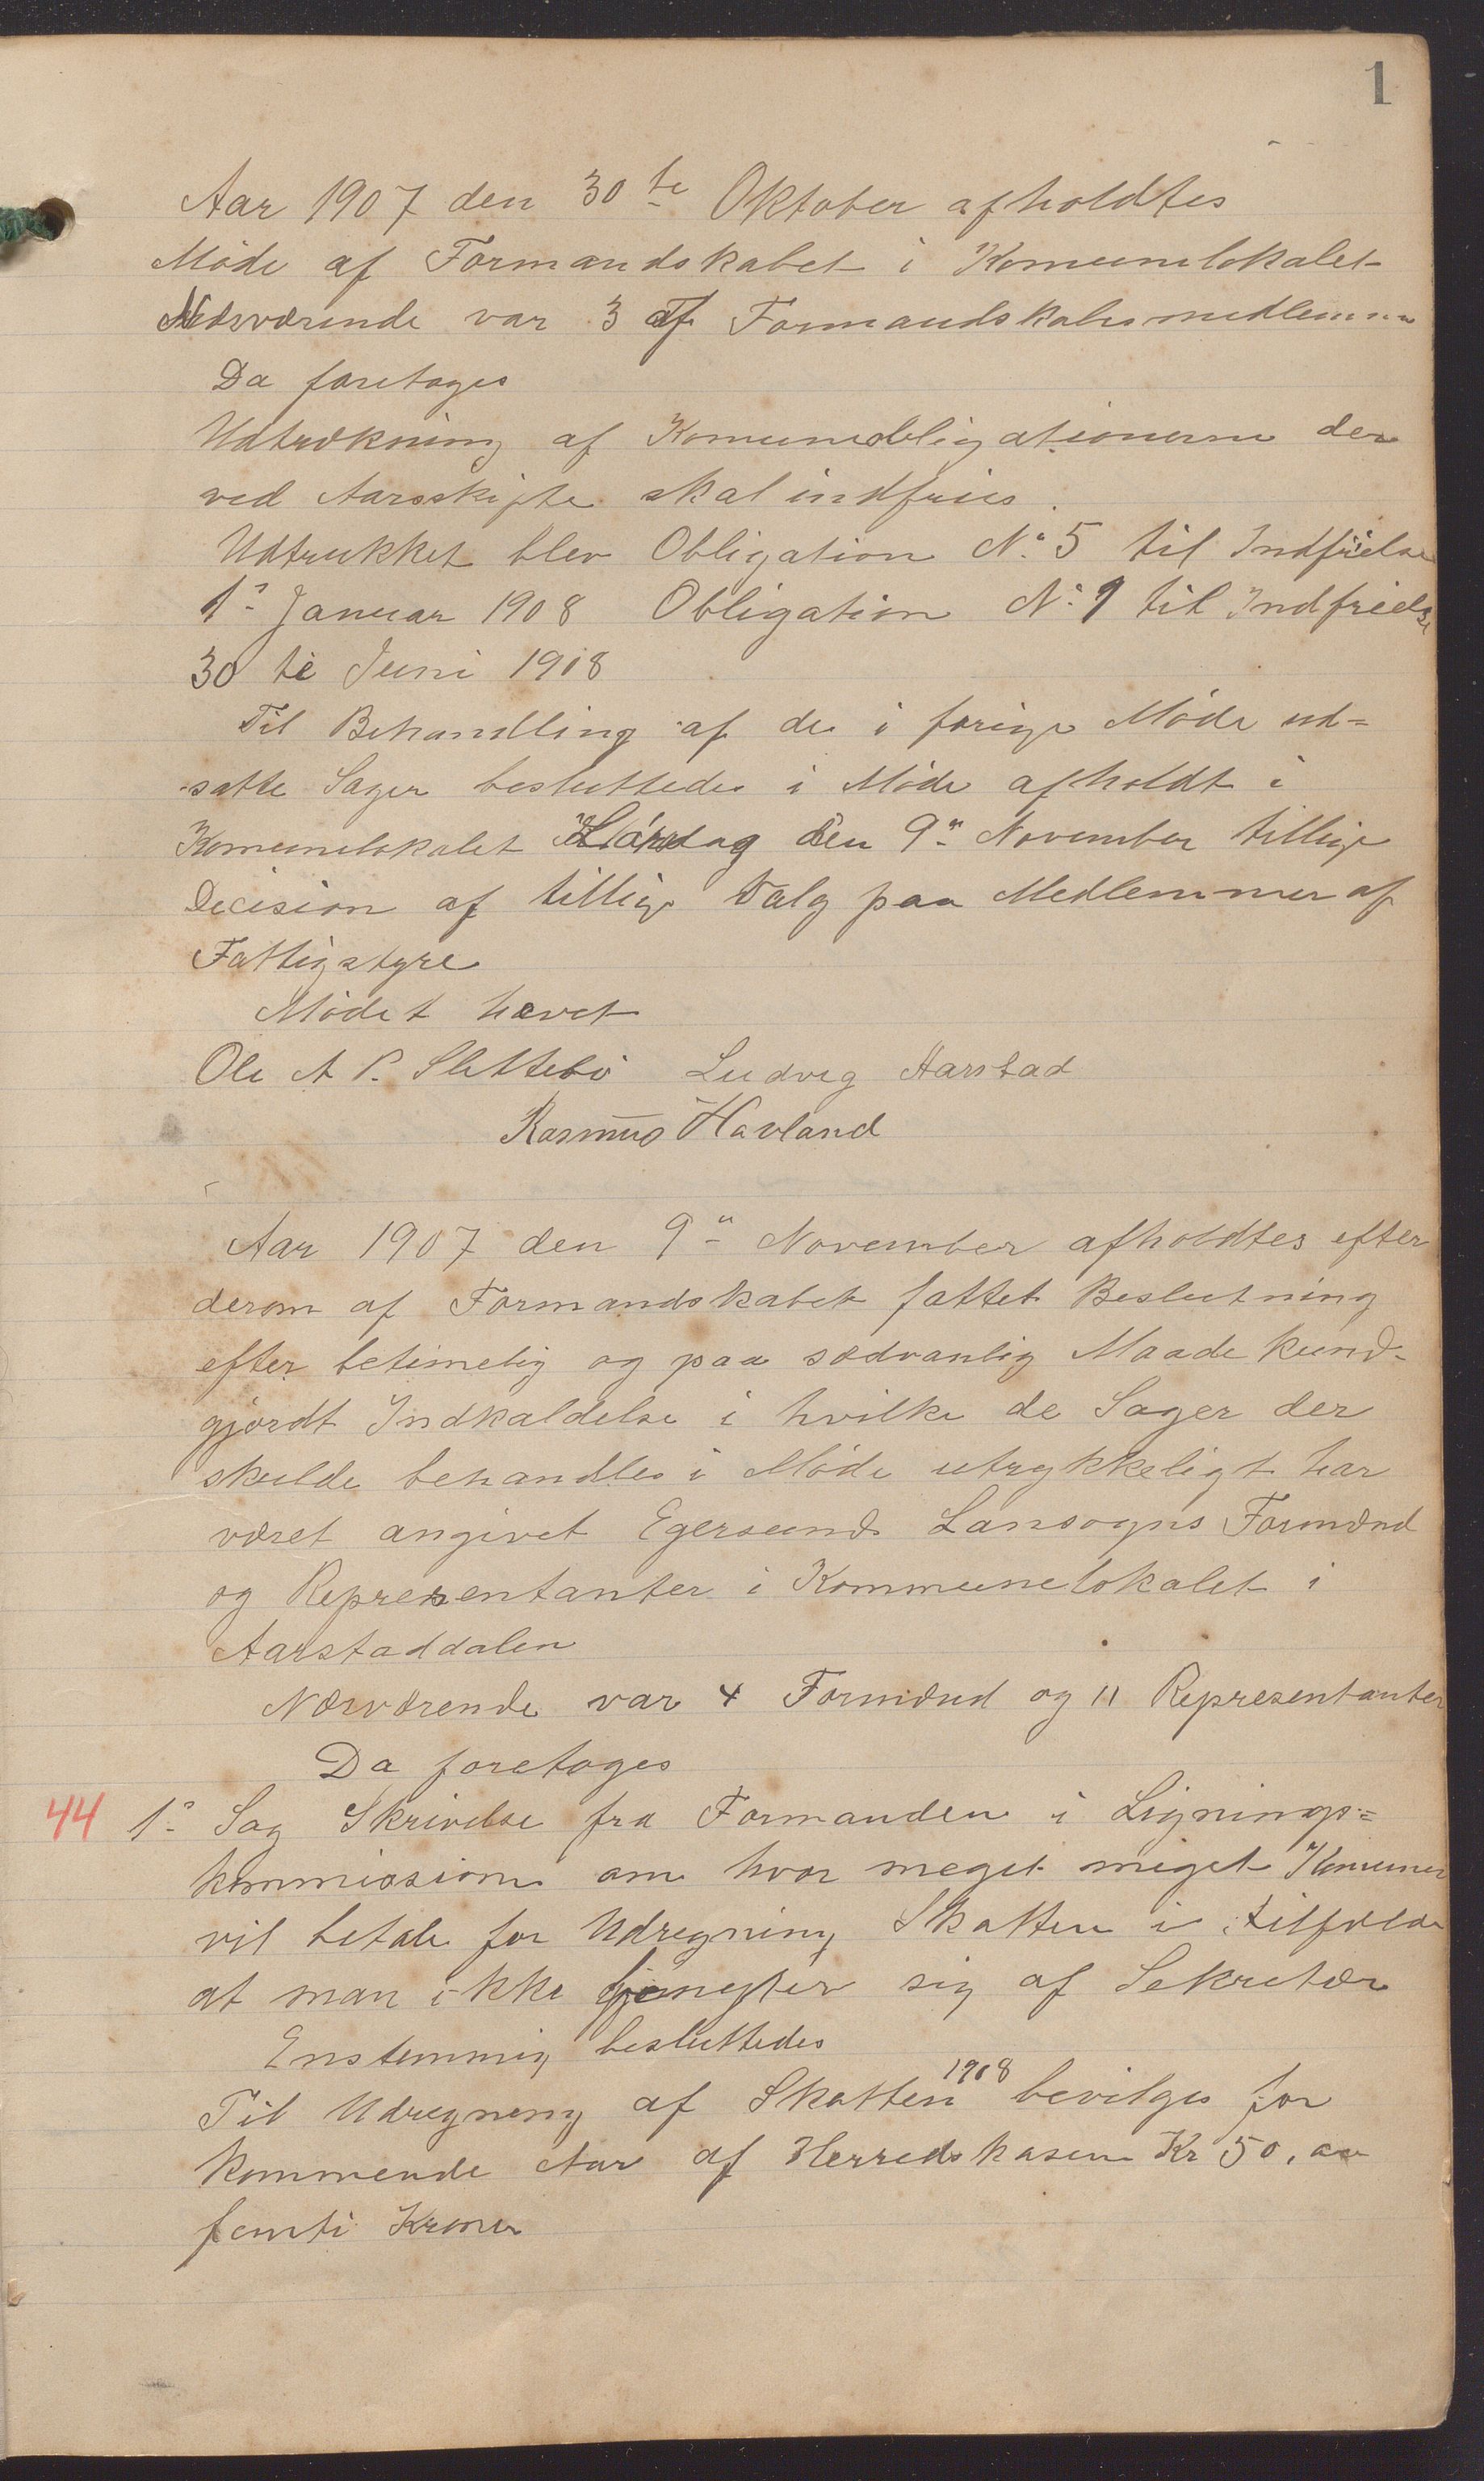 1
Aar 1907 den 30te Oktober afholdtes
Møde af Formandskabet i Komunelokalet
Nærværende var 3 af Formandskabsmedlemmer
Da foretoges
Udtrækning af Komuneobligationerne der
ved Aarsskifte skal indfries.
Udtrukket blev Obligation No 5 til Indfrielse
1ste Januar 1908 Obligation No 9 til Indfrielse
30 te Juni 1908
Til Behandling af de i forige Møde ud=
satte Sager besluttedes i Møde afholdt i
Komunelokalet Lørdag den 9de November tillige
Decision af tillige Valg paa Medlemmer af
Fattigstyre
Mødet hævet
Ole A P. Slettebø Ludvig Aarstad
Rasmus Havland
Aar 1907 den 9de November afholdtes efter
derom af Formandskabet fattet Beslutning
efter betimelig og paa sædvanlig Maade kund-
gjordt Indkaldelse i hvilke de Sager der
skulde behandles i Møde utrykkeligt har
været angivet Egersunds Lansogns Formænd
og Representanter i Kommunelokalet i
Aarstaddalen
Nærværende var 4 Formænd og 11 Representanter
Da foretoges
44 1ste Sag Skrivelse fra Formanden i Lignings=
kommission om hvor meget meget Komunen
vil betale for Udregning Skatten i tilfælde
at man ikke sig af Sekretær
Enstemmig besluttedes
Til Udregning af Skatten 1908 bevilges for
kommende Aar af Herredskasen Kr 50,
femti Kroner